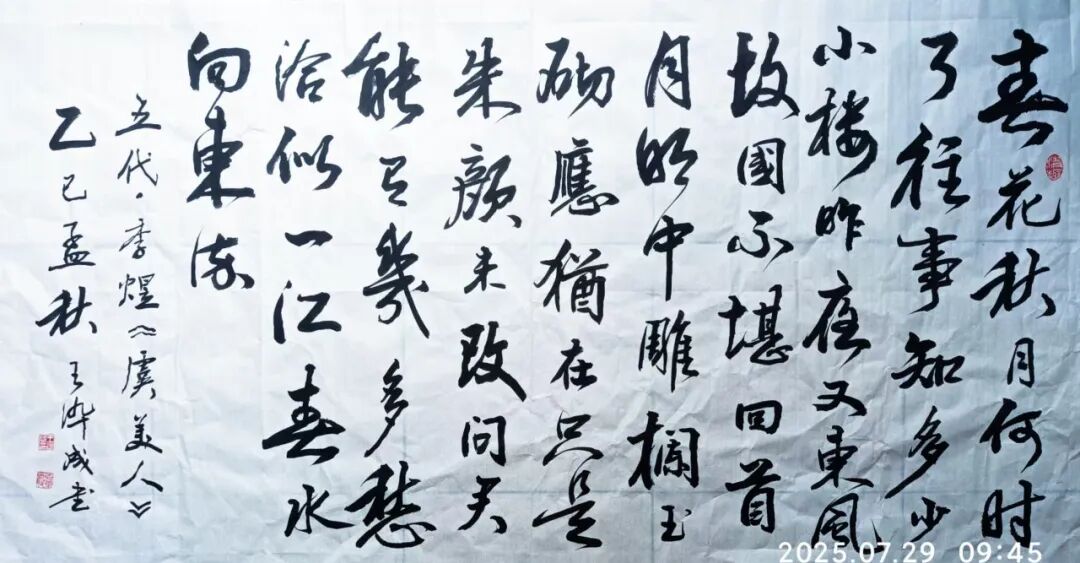 春花秋月何时
了往事知多少
小楼昨夜又東風
故國不堪回首
月明中雕欄玉
砌應猶在只是
朱顏未改问君
能有幾多愁
恰似一江春水
向東流
五代·李煜《虞美人》
乙巳孟秋 王成书
2025.07.29 09:45